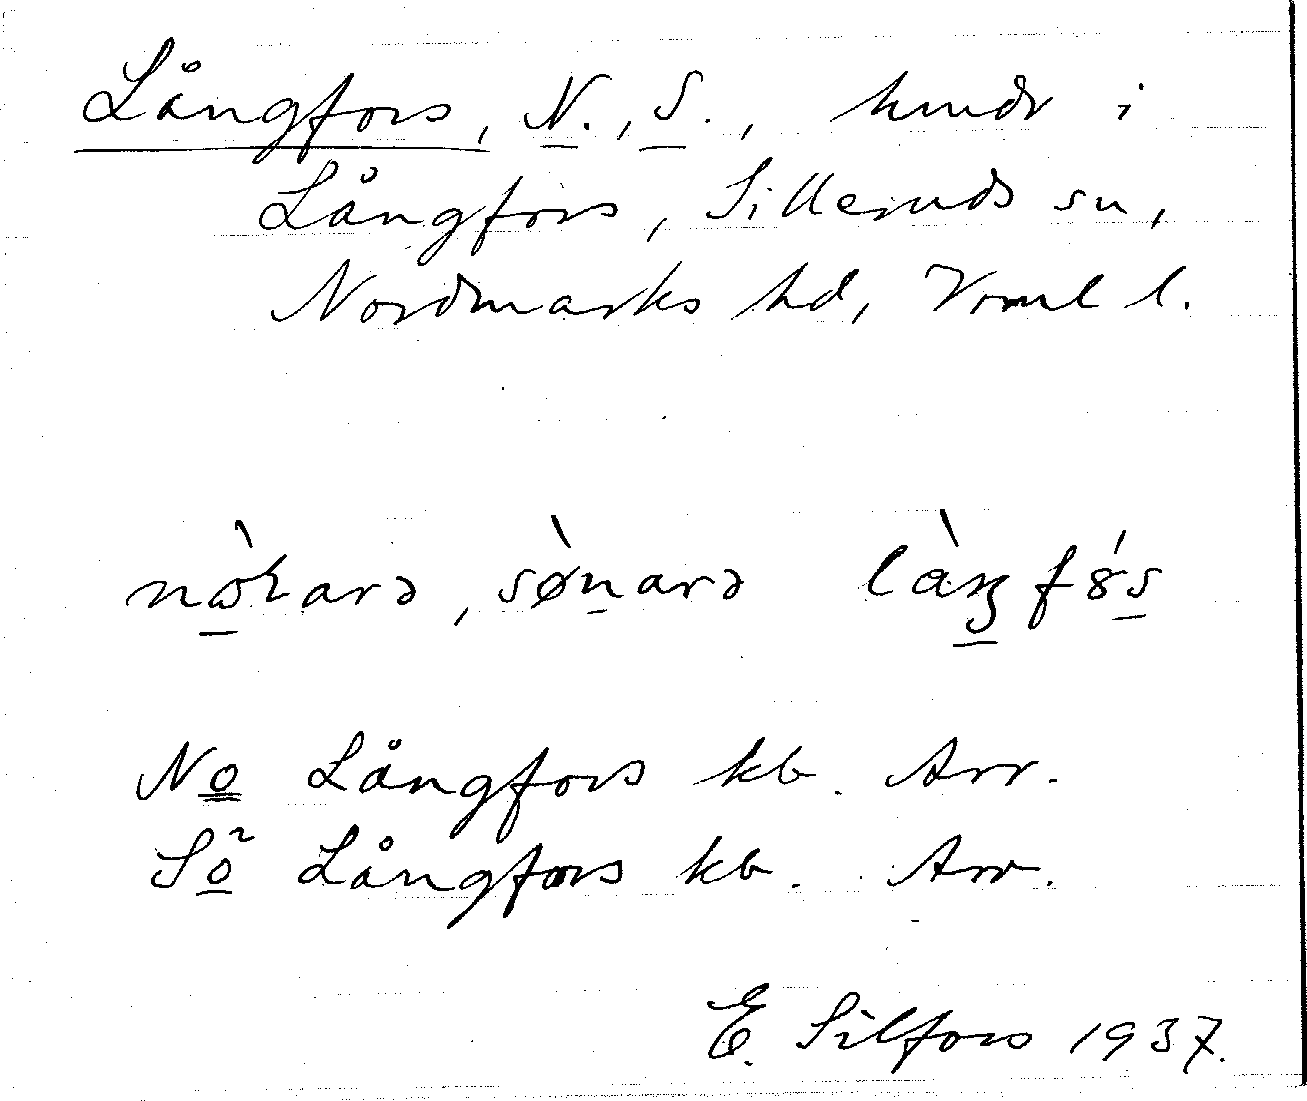 Långfors, N., S., hmdr i
Långfors, Silleruds sn,
Nordmarks hd, Vrml l.
nòrarə, sø̀narə làŋfɵ́s
No Långfors kb. Arr.
Sö Långfors kb. Arr.
E. Silfors 1937.